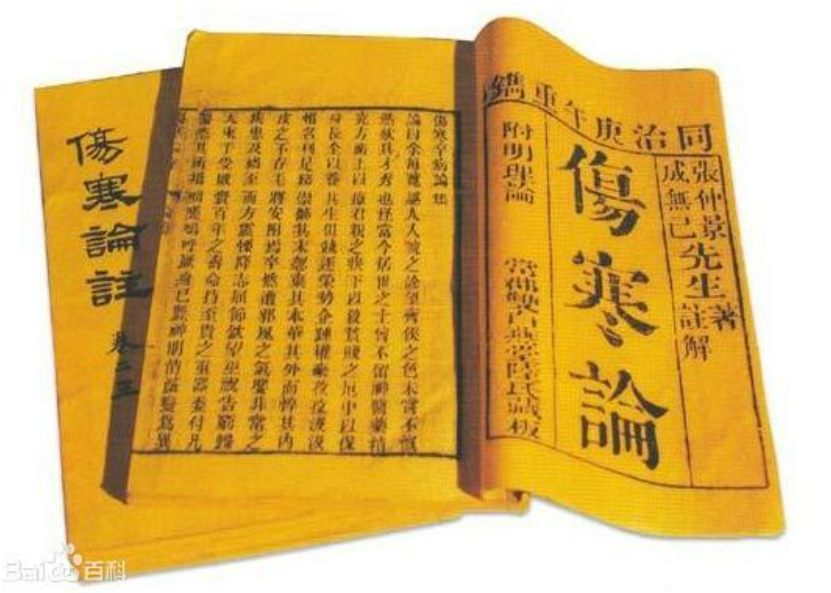 同治庚午重鐫
張仲景先生著
成無己先生註解
傷寒論
附明理論 常郡雙白燕堂陸氏藏板
傷寒卒病論集
論曰余每覽越人入虢之診望齊侯之色未嘗不慨
然歎其才秀也怪當今居世之士曾不留神醫藥精
究方術上以療君親之疾下以救貧賤之厄中以保
身長全以養其生但競逐榮勢企踵權豪孜孜汲汲
惟名利是務崇飾其末忽棄其本華其外而悴其內
皮之不存毛將安附焉卒然遭邪風之氣嬰非常之
疾患及禍至而方震慄降志屈節欽望巫祝告窮歸
天束手受敗賫百年之壽命持至貴之重器委付凡
醫恣其所措咄嗟嗚呼厥身已斃神明消滅變為異
傷寒論註
卷二三
Baidu百科